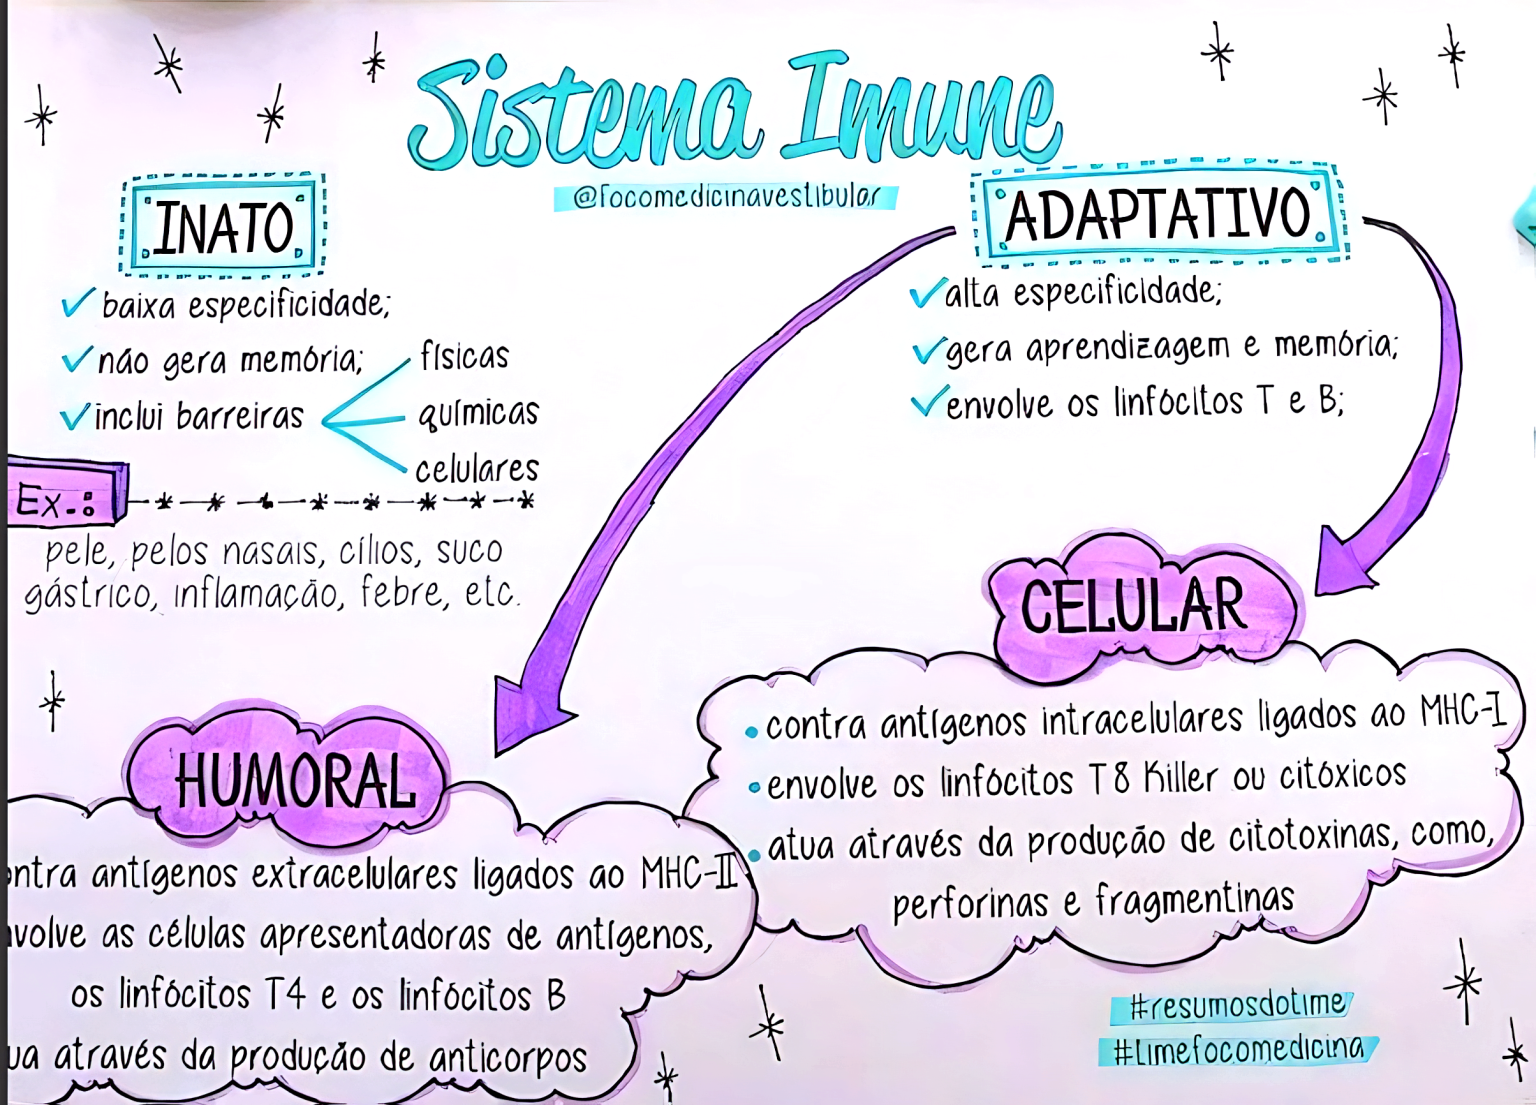 Sistema Imune
@focomedicinavestibular
INATO
baixa especificidade;
não gera memória;
inclui barreiras
físicas
químicas
celulares
Ex.:
pele, pelos nasais, cílios, suco
gástrico, inflamação, febre, etc.
ADAPTATIVO
alta especificidade;
gera aprendizagem e memória;
envolve os linfócitos T e B;
CELULAR
• contra antígenos intracelulares ligados ao MHC-I
• envolve os linfócitos T8 Killer ou citóxicos
• atua através da produção de citotoxinas, como,
perforinas e fragmentinas
HUMORAL
ntra antígenos extracelulares ligados ao MHC-II
volve as células apresentadoras de antígenos,
os linfócitos T4 e os linfócitos B
ua através da produção de anticorpos
#resumosdotime
#timefocomedicina